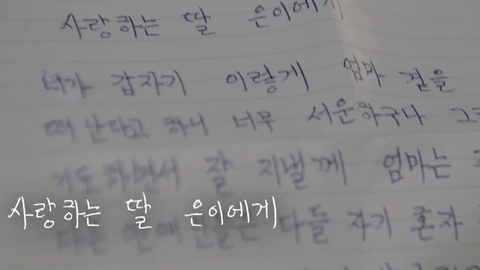 사랑하는 딸 은이에게
너가 갑자기 이렇게 엄마 곁을
떠난다고 하니 너무 서운하구나 그
기도하면서 잘 지낼께 엄마는
사랑하는 딸 은이에게
다들 자기 혼자